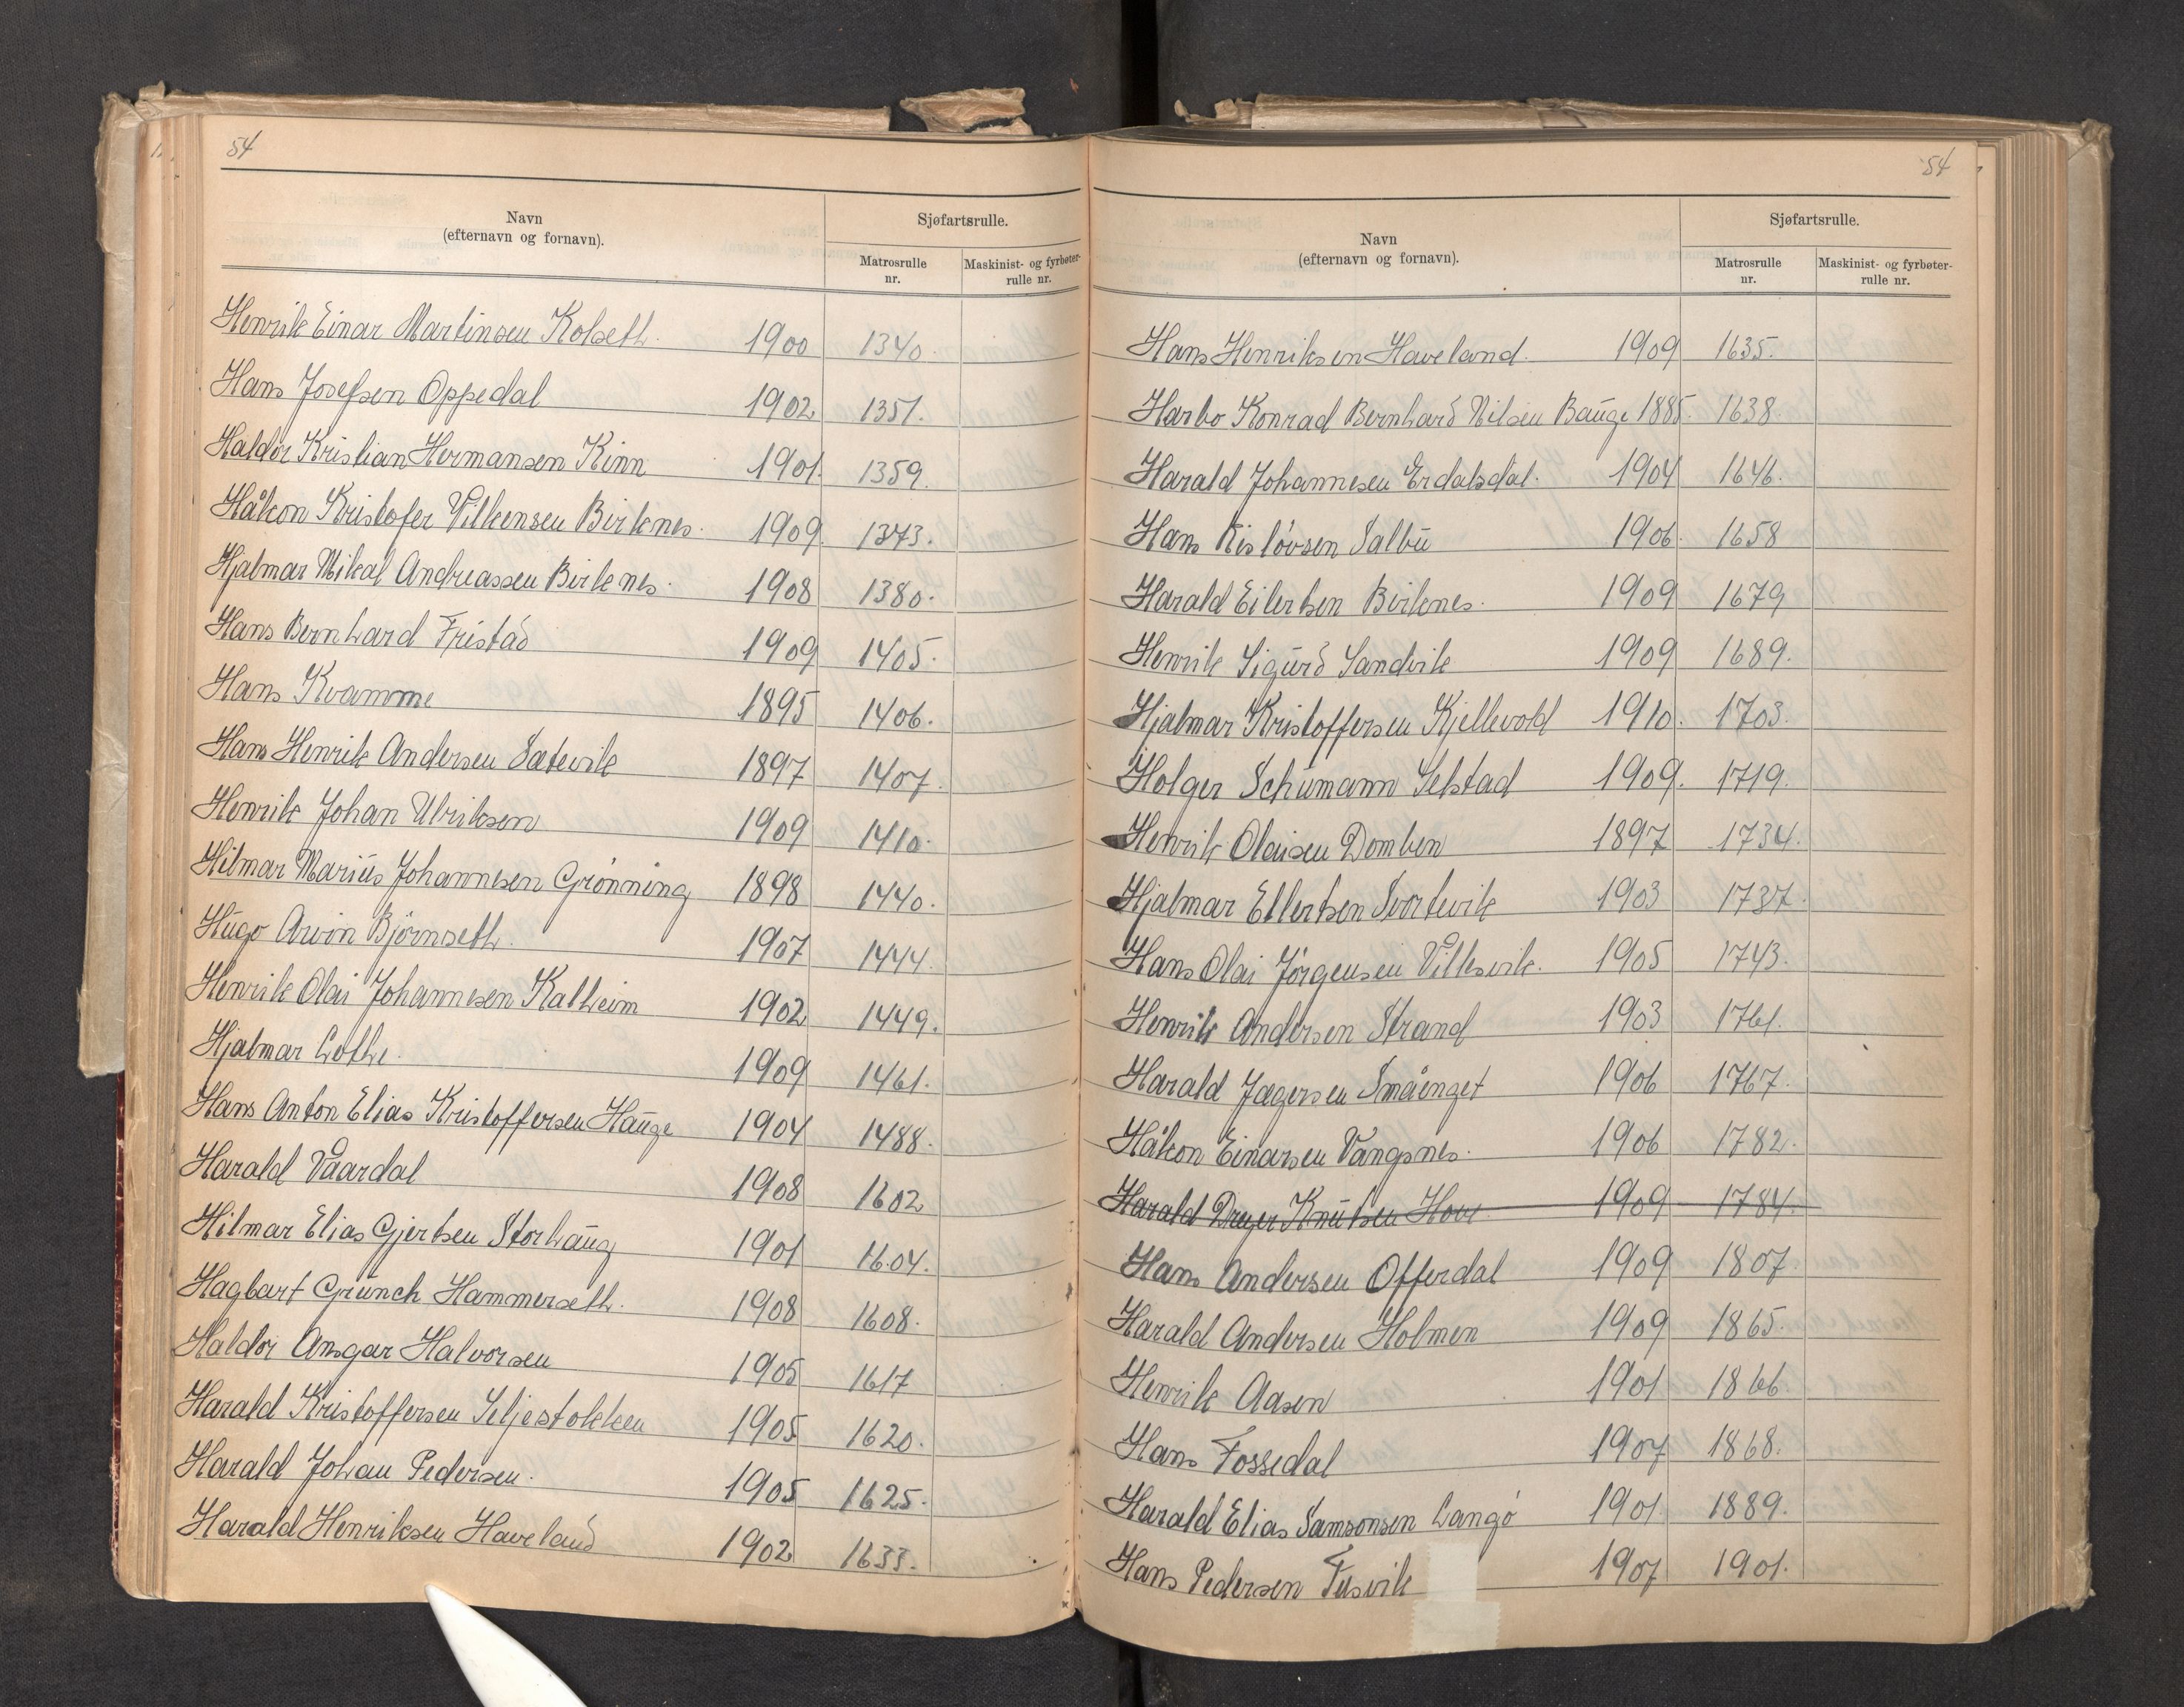 54
Navn
(efternavn og fornavn).
Sjøfartsrulle.
Matrosrulle
nr.
Maskinist- og fyrbøter-
rulle nr.
Henrik Einar Martinsen Kolseth. 1900 1340.
Hans Josefsen Oppedal 1902 1351.
Haldor Kristian Hermansen Kinn 1901. 1359.
Håkon Kristofer Vilkensen Birknes. 1909. 1373.
Hjalmar Mikal Andreassen Birknes. 1908 1380.
Hans Bernhard Fristad 1909 1405.
Hans Kvamme 1895 1406.
Hans Henrik Andersen Sætevik 1897 1407.
Henrik Johan Ulriksen 1909 1410.
Hilmar Marius Johannesen Grønning 1898 1440.
Hugo Arvin Bjørnseth. 1907 1444.
Henrik Olai Johannesen Kalheim 1902 1449.
Hjalmar Lothe. 1909 1461.
Hans Anton Elias Kristoffersen Hauge 1904 1488.
Harald Vaardal 1908 1602
Hilmar Elias Gjertsen Storhaug 1901 1604.
Hagbart Grunch Hammerseth. 1908 1608.
Haldor Ansgar Halvorsen 1905 1617
Harald Kristoffersen Seljestokken 1905 1620.
Harald Johan Pedersen. 1905 1625.
Harald Henriksen Haveland 1902 1633.
54
Navn
(efternavn og fornavn).
Sjøfartsrulle.
Matrosrulle
nr.
Maskinist- og fyrbøter-
rulle nr.
Hans Henriksen Haveland. 1909 1635.
Harbo Konrad Bernhard Nilsen Bauge 1885. 1638.
Harald Johannesen Erdalsdal. 1904 1646.
Hans Salbu 1906. 1658
Harald Eilertsen Birknes. 1909 1679
Henrik Sigurd Sandvik 1909 1689.
Hjalmar Kristoffersen Kjellevold 1910. 1703.
Holger Schumann Selstad 1909. 1719.
Henrik Olaisen Domben 1897 1734.
Hjalmar Ellertsen Svortevik 1903 1737.
Hans Olai Jørgensen Vilksvik. 1905 1743.
Henrik Andersen Strand 1903 1761.
Harald Jægersen Småenget 1906 1767.
Håkon Einarsen Vangsnes. 1906 1782.
Harald Dreyer Knutsen Hove 1909 1784.
Hans Andersen Offerdal 1909 1807.
Harald Andersen Holmen 1909 1865.
Henrik Aasen 1901 1866.
Hans Fossedal 1907 1868.
Harald Elias Samsonsen Langø 1901. 1889.
Hans Pedersen Tusvik 1907 1901.